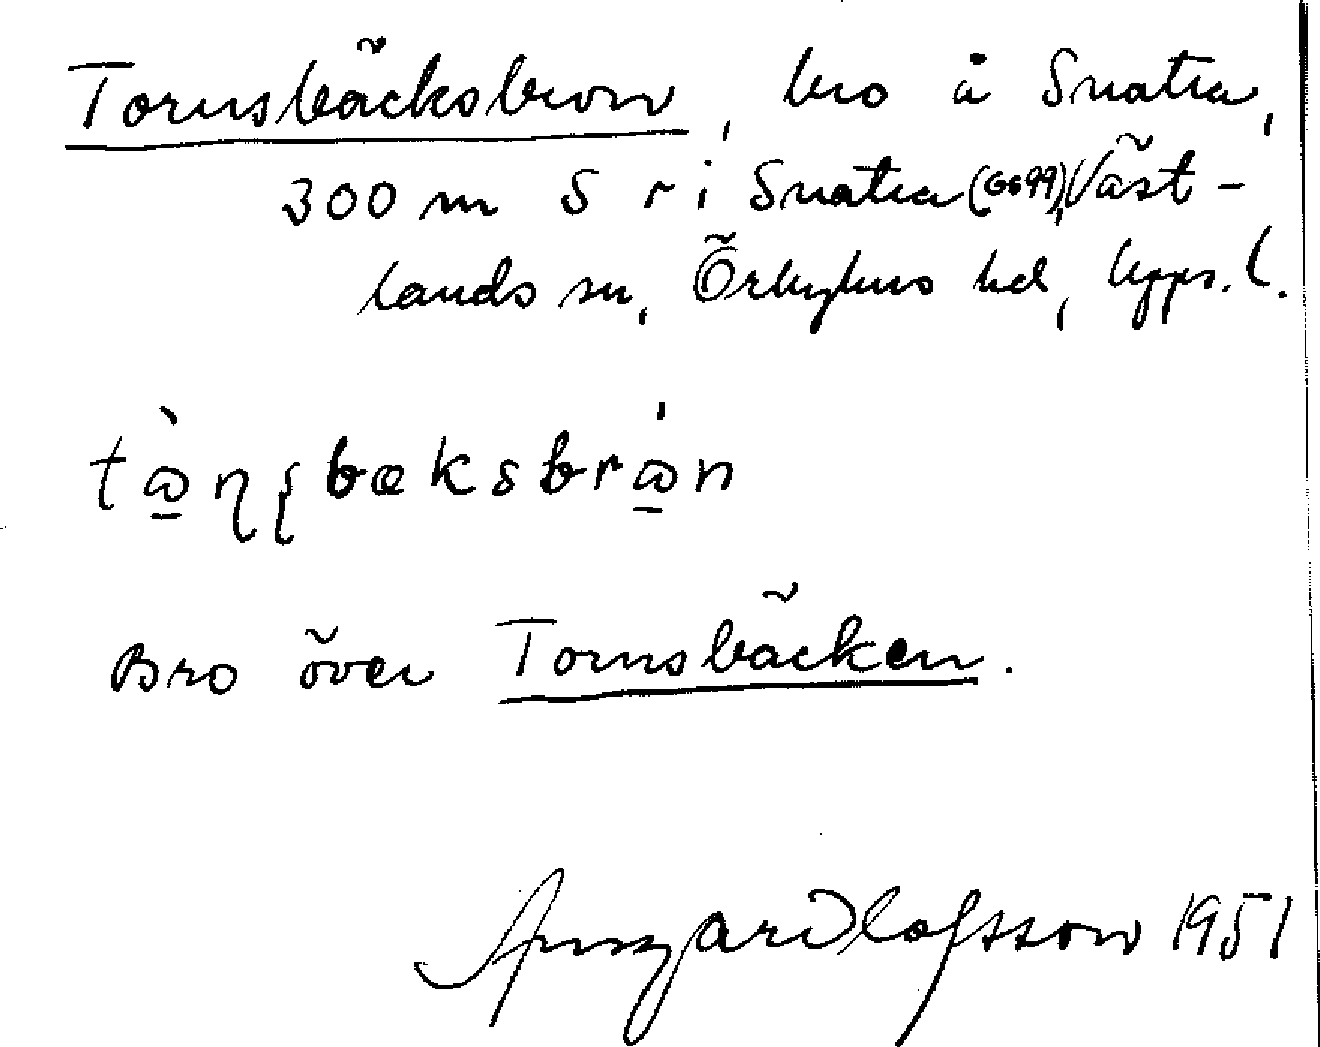 Tornsbäcksbron, bro å Snatra,
300 m S r i Snatra (GS99), Väst-
lands sn, Örbyhus hd, Upps. l.
tὼ̱ɳʂbæksbrώ̱n
Bro över Tornsbäcken.
Ansgar Olofsson 1951